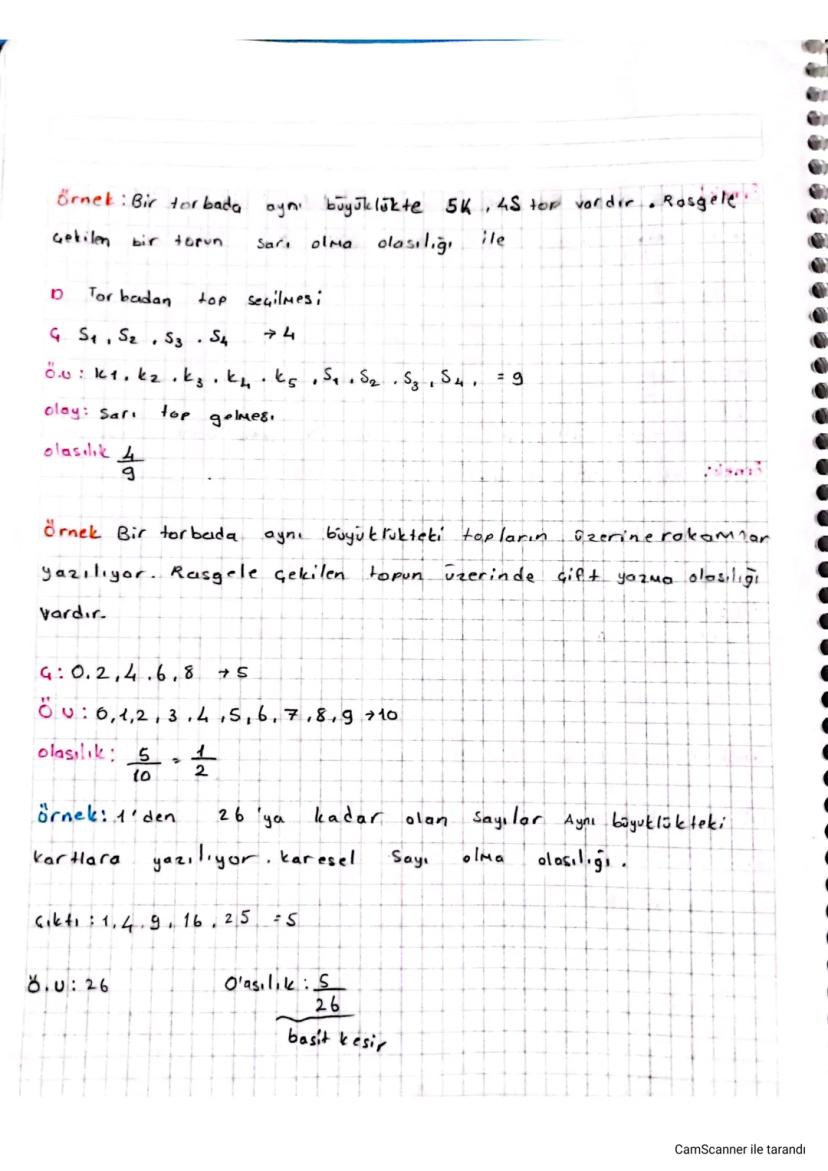 örnek: Bir torbada aynı büyüklükte 5K, 4S top vardır. Rasgele
çekilen bir topun sarı olma olasılığı ile
D Torbadan top seçilmesi
Ç S1, S2, S3. S4 → 4
Ö.U: k1, k2, k3, k4, k5, S1, S2, S3, S4, = 9
olay: sarı top gelmesi
olasılık 4/9
örnek Bir torbada aynı büyüklükteki topların üzerine rakamlar
yazılıyor. Rasgele çekilen topun üzerinde çift yazma olasılığı
vardır.
Ç: 0.2,4.6,8 → 5
Ö U: 0,1,2,3,4,5,6,7,8,9 → 10
olasılık: 5/10 = 1/2
örnek: 1'den 26'ya kadar olan sayılar Aynı büyüklükteki
kartlara yazılıyor. karesel sayı olma olasılığı.
çıktı: 1,4.9, 16, 25 = 5
Ö.U: 26 O'asılık: 5/26
basit kesir
CamScanner ile tarandı